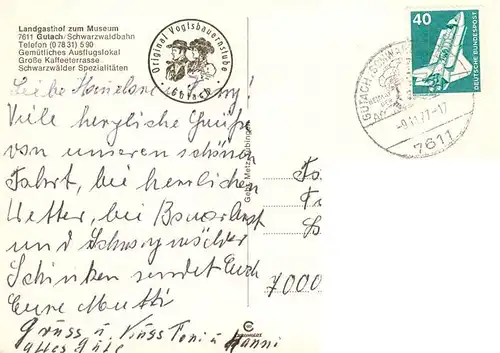 Landgasthof zum Museum
7611 Gutach/Schwarzwaldbahn
Telefon (0 78 31) 5 90
Gemütliches Ausflugslokal
Große Kaffeeterrasse
Schwarzwälder Spezialitäten
Original Vogtsbauernstube
Gutach
40
DEUTSCHE BUNDESPOST
GUTACH
7611
Gebr. Metz, Tübingen
Liebe
Viele herzliche Grüße
von unseren schönen
Fahrt, bei herrlichen
Wetter, bei Bauernbrot
und Schwarzwälder
Schinken sendet Euch
Eure Mutti
Gruss u. Kuss Toni u Hanni
alles Gute
7000